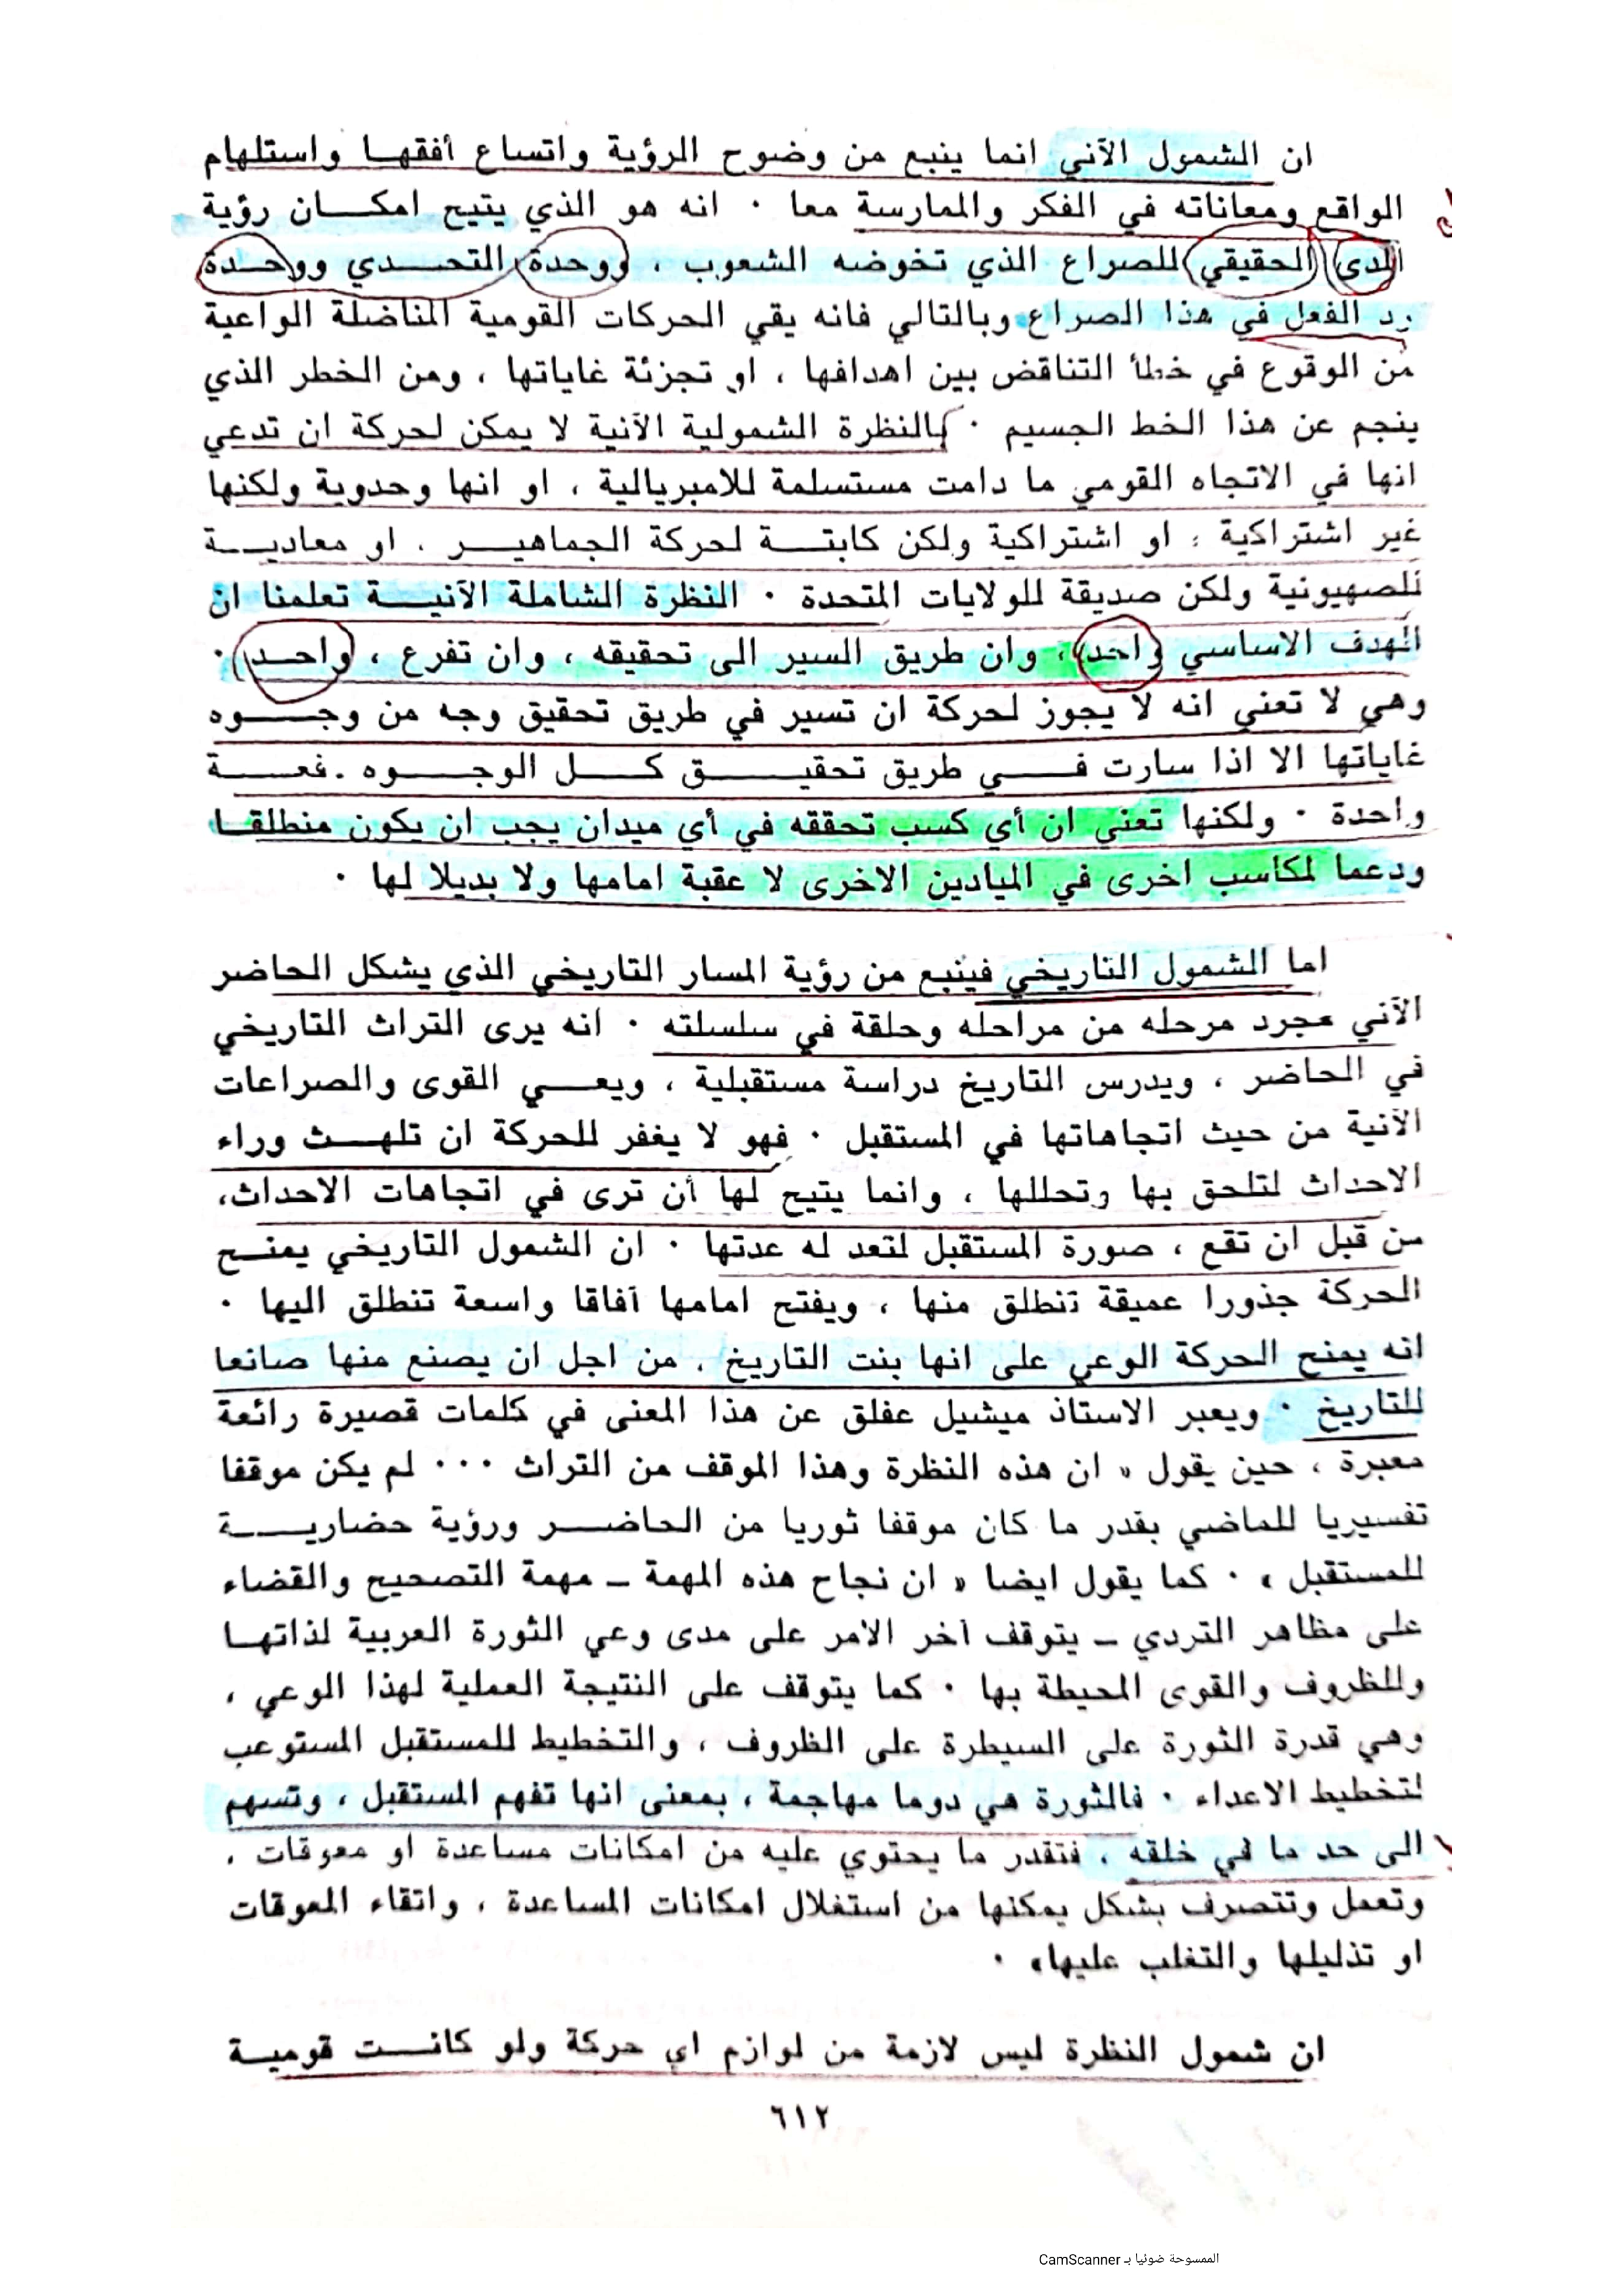 ان الشمول الآني انما ينبع من وضوح الرؤية واتساع أفقهــا واستلهام
الواقع ومعاناته في الفكر والممارسة معا . انه هو الذي يتيح امكــان رؤية
المدى الحقيقي للصراع الذي تخوضه الشعوب ، ووحدة التحــدي ووحــدة
رد الفعل في هذا الصراع وبالتالي فانه يقي الحركات القومية المناضلة الواعية
من الوقوع في خطأ التناقض بين اهدافها ، او تجزئة غاياتها ، ومن الخطر الذي
ينجم عن هذا الخط الجسيم . بالنظرة الشمولية الآنية لا يمكن لحركة ان تدعي
انها في الاتجاه القومي ما دامت مستسلمة للامبريالية ، او انها وحدوية ولكنها
غير اشتراكية ، او اشتراكية ولكن كابتــة لحركة الجماهيــر ، او معاديــة
للصهيونية ولكن صديقة للولايات المتحدة . النظرة الشاملة الآنيــة تعلمنا ان
الهدف الاساسي واحد ، وان طريق السير الى تحقيقه ، وان تفرع ، واحــد .
وهي لا تعني انه لا يجوز لحركة ان تسير في طريق تحقيق وجه من وجــوه
غاياتها الا اذا سارت فــي طريق تحقيــق كــل الوجــوه دفعــة
واحدة . ولكنها تعني ان أي كسب تحققه في أي ميدان يجب ان يكون منطلقــا
ودعما لمكاسب اخرى في الميادين الاخرى لا عقبة امامها ولا بديلا لها .
اما الشمول التاريخي فينبع من رؤية المسار التاريخي الذي يشكل الحاضر
الآني مجرد مرحله من مراحله وحلقة في سلسلته . انه يرى التراث التاريخي
في الحاضر ، ويدرس التاريخ دراسة مستقبلية ، ويعــي القوى والصراعات
الآنية من حيث اتجاهاتها في المستقبل . فهو لا يغفر للحركة ان تلهــث وراء
الاحداث لتلحق بها وتحللها ، وانما يتيح لها أن ترى في اتجاهات الاحداث،
من قبل ان تقع ، صورة المستقبل لتعد له عدتها . ان الشمول التاريخي يمنــح
الحركة جذورا عميقة تنطلق منها ، ويفتح امامها آفاقا واسعة تنطلق اليها .
انه يمنح الحركة الوعي على انها بنت التاريخ ، من اجل ان يصنع منها صانعا
للتاريخ . ويعبر الاستاذ ميشيل عفلق عن هذا المعنى في كلمات قصيرة رائعة
معبرة ، حين يقول « ان هذه النظرة وهذا الموقف من التراث ... لم يكن موقفا
تفسيريا للماضي بقدر ما كان موقفا ثوريا من الحاضــر ورؤية حضاريــة
للمستقبل » . كما يقول ايضا « ان نجاح هذه المهمة ـ مهمة التصحيح والقضاء
على مظاهر التردي ـ يتوقف آخر الامر على مدى وعي الثورة العربية لذاتهــا
وللظروف والقوى المحيطة بها . كما يتوقف على النتيجة العملية لهذا الوعي ،
وهي قدرة الثورة على السيطرة على الظروف ، والتخطيط للمستقبل المستوعب
لتخطيط الاعداء . فالثورة هي دوما مهاجمة ، بمعنى انها تفهم المستقبل ، وتسهم
الى حد ما في خلقه ، فتقدر ما يحتوي عليه من امكانات مساعدة او معوقات ،
وتعمل وتتصرف بشكل يمكنها من استغلال امكانات المساعدة ، واتقاء المعوقات
او تذليلها والتغلب عليها» .
ان شمول النظرة ليس لازمة من لوازم اي حركة ولو كانــت قوميــة
٦١٢
الممسوحة ضوئيا بـ CamScanner